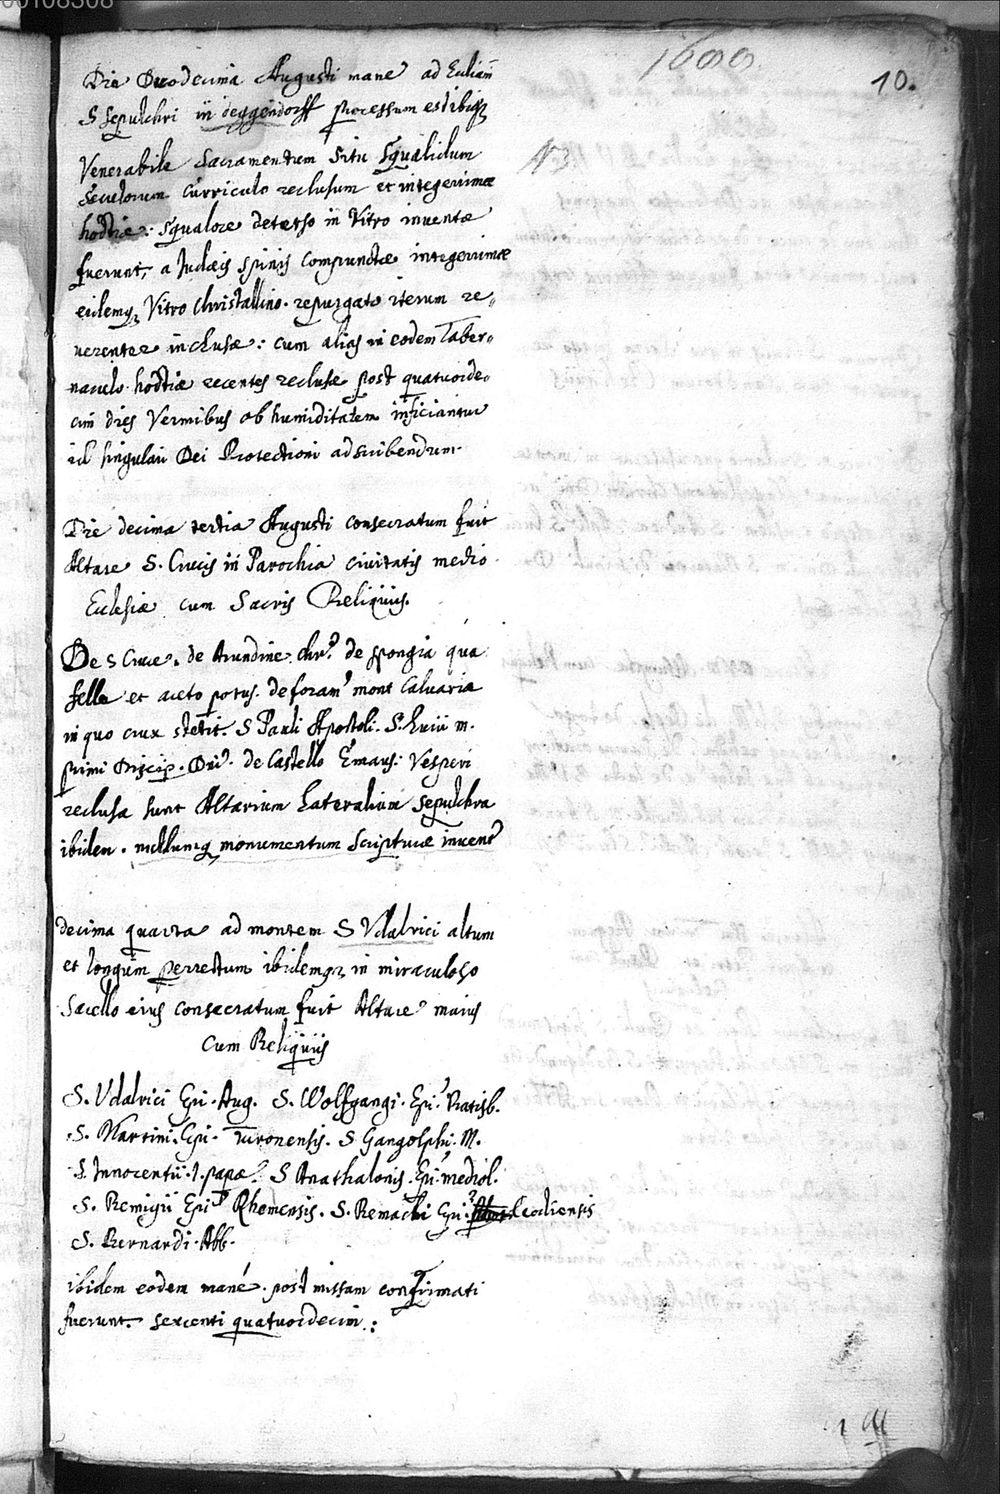 00108308
1600.
10.
Die Duodecima Augusti mane ad Eccliam̄
S Sepulchri in deggendorff processum est ibiq3
NB.
Venerabile Sacramentum situ squalidum
Seculorum curriculo reclusum et integerrimæ
hostiæ: squalore deterso in Vitro inventæ
fuerunt, a Judæis spinis compunctæ integerrimæ
eidemq3 Vitro Christallino repurgato iterum re-
verenter inclusæ: cum alias in eodem Taber-
naculo hostiæ recentes reclusæ post quatuorde-
cim dies Vermibus ob humiditatem inficiantur
id singulari Dei Protectioni adscribendum.
Die decima tertia Augusti consecratum fuit
Altare S. Crucis in Parochia civitatis medio
Ecclesiæ cum Sacris Reliquiis.
De S Cruce. de Arundine Chri. de spongia qua
felle et aceto potus. de foram' mont Calvariæ
in quo crux stetit. S Pauli Apostoli. S. Lucii m.
primi Discip. Dni. de Castello Emaus: Vesperi
reclusa sunt Altarium Lateralium sepulchra
ibidem. nullumq3 monumentum scripturæ invent'
decima quarta ad montem S Vdalrici altum
et longum perrectum ibidemq3 in miraculoso
Sacello eius consecratum fuit Altare maius
Cum Reliquiis
S. Vdalrici Epi. Aug. S. Wolfgangi. Epi. Ratisb.
S. Martini. Epi. Turonensis. S Gangolphi. M.
S. Innocentii. 1. papæ. S Anathalonis. Epi. mediol.
S. Remigii Epi Rhemensis. S. Remacli Epi. Leodiensis
S. Bernardi. Abb.
ibidem eodem mané. post missam confirmati
fuerunt. sexcenti quatuordecim.: